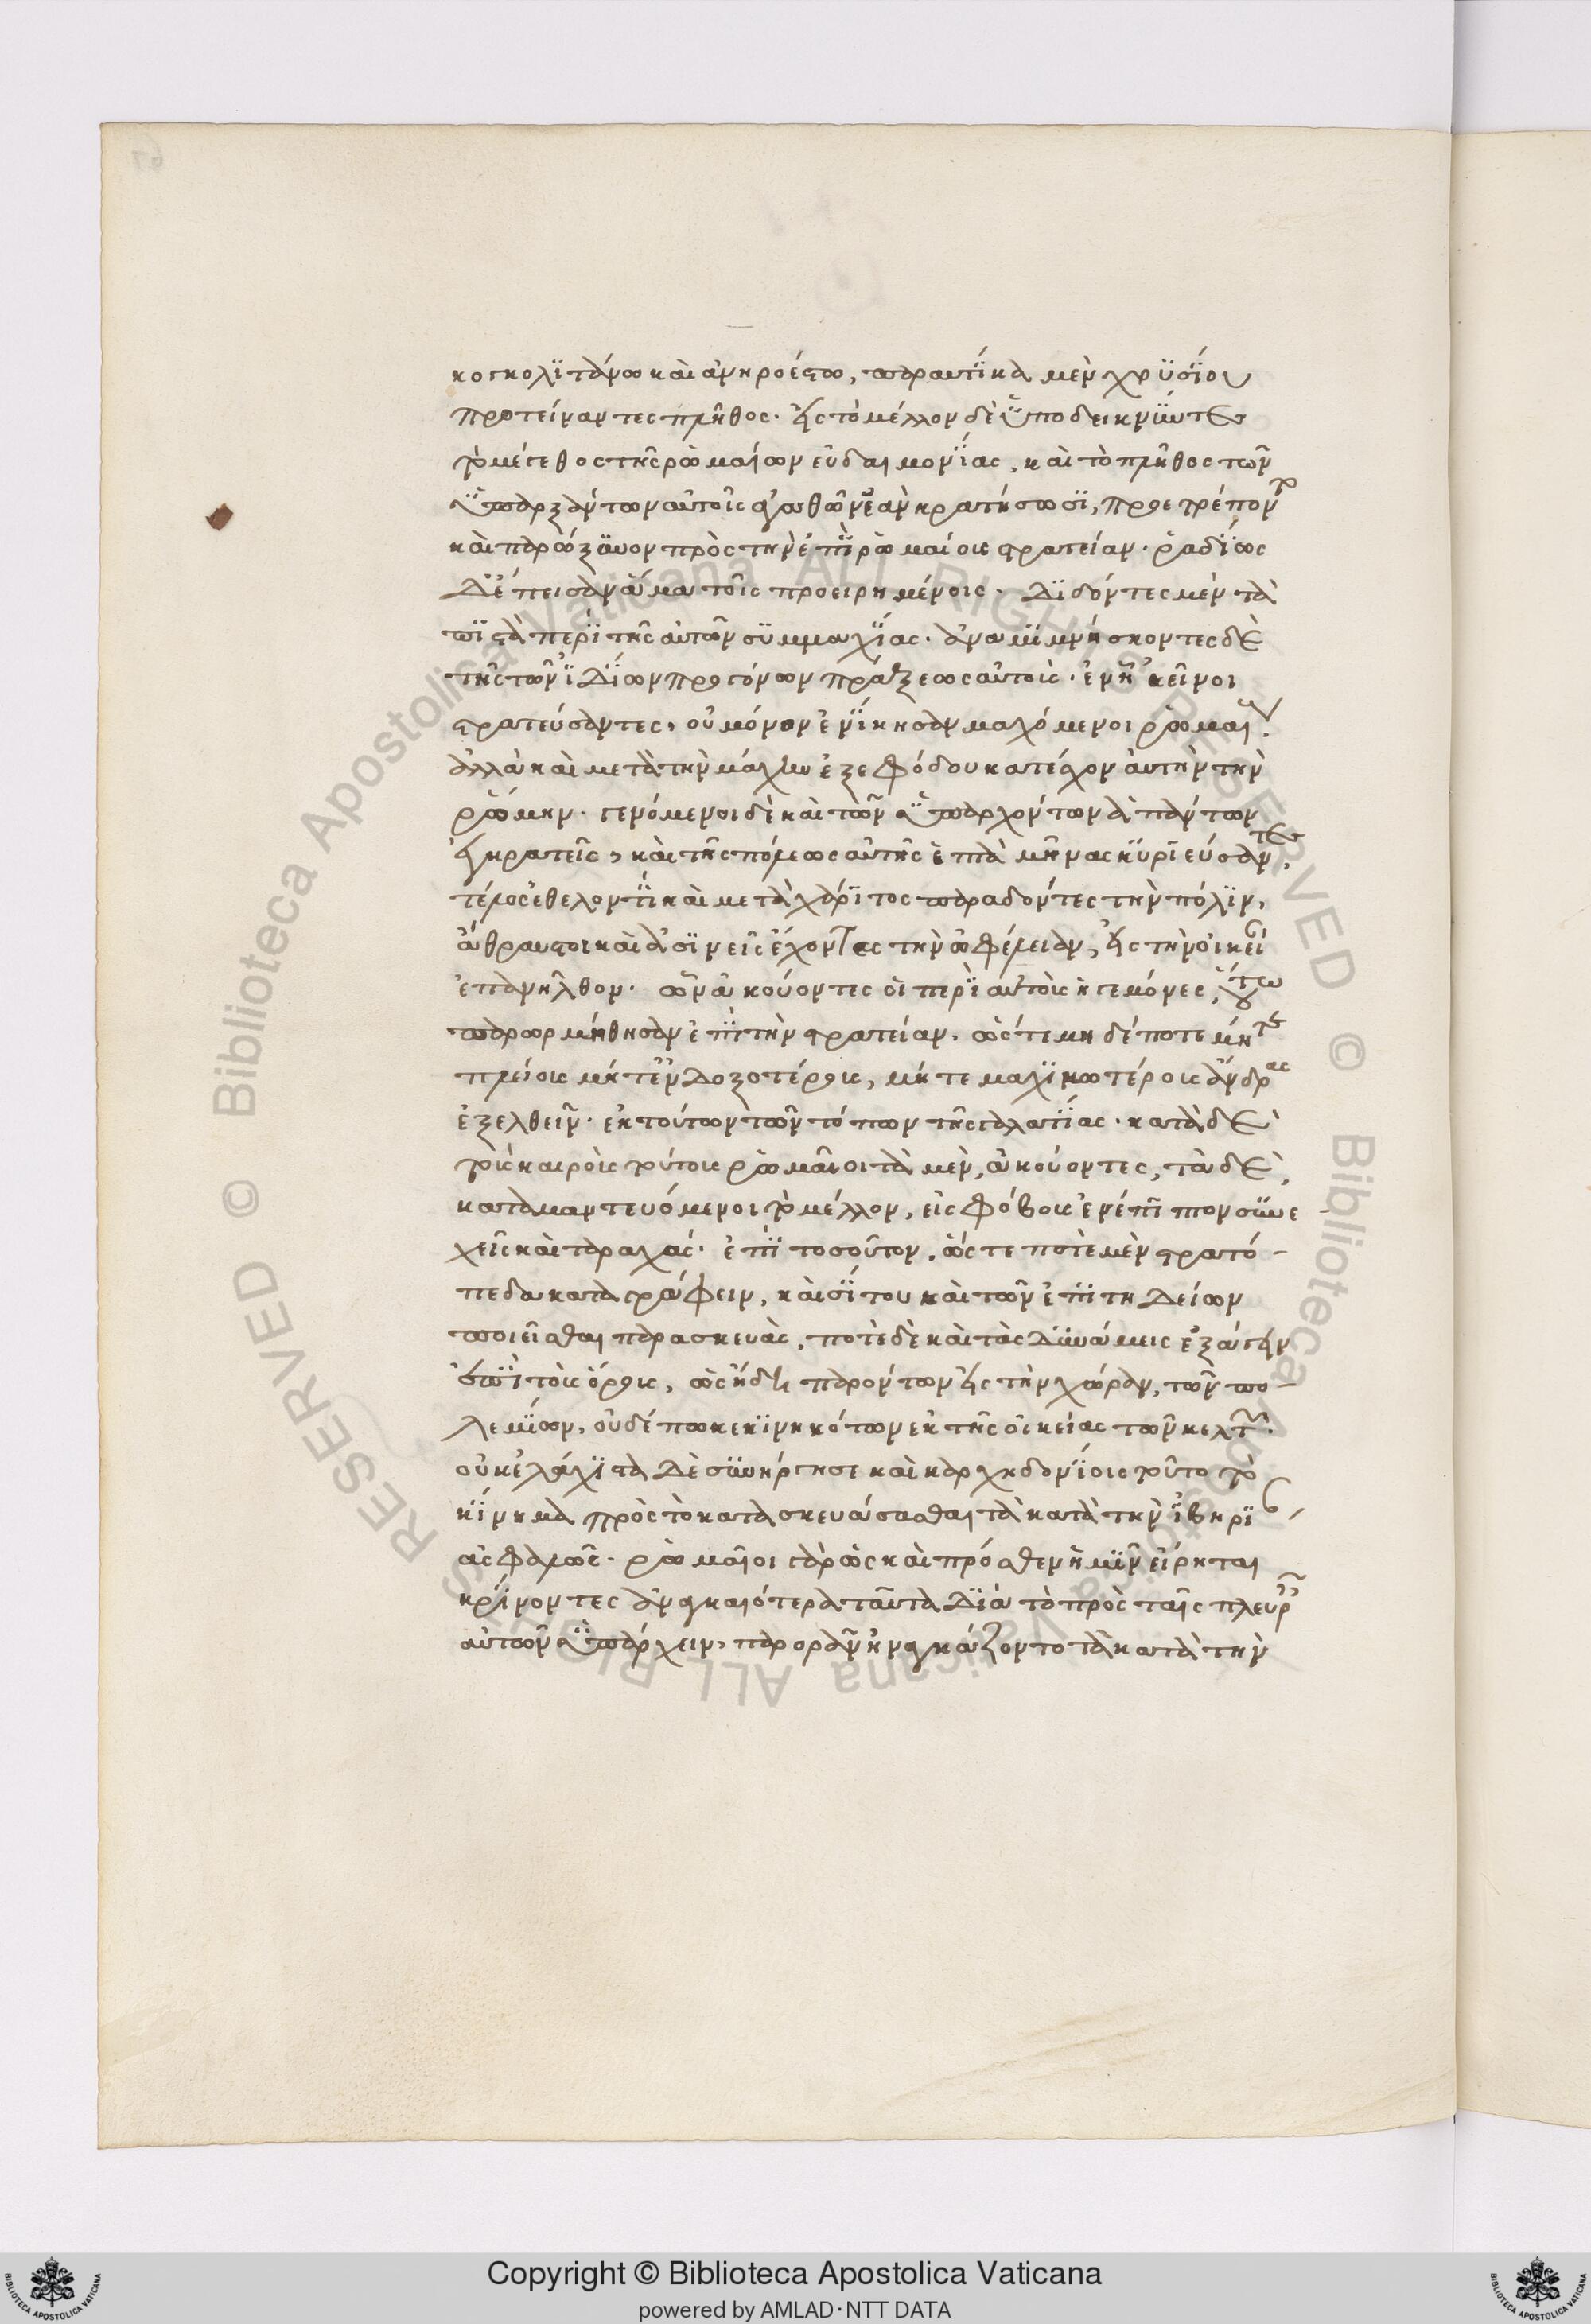 κογκολιτάνω καὶ ἀνηροέστω, παραυτίκα μὲν χρυσίου
προτείναντες πλῆθος. εἰς τὸ μέλλον δὲ ὑποδεικνύντες
τὸ μέγεθος τῆς ρωμαίων εὐδαιμονίας, καὶ τὸ πλῆθος τῶν
ὑπαρξάντων αὐτοῖς ἀγαθῶν ἐὰν κρατήσωσι, προετρέποντ
καὶ παρώξυνον πρὸς τὴν ἐπὶ ρωμαίοις στρατείαν. ῥαδίως
δ' ἔπεισαν ἅμα τοῖς προειρημένοις. διδόντες μὲν τὰ
πιστὰ περὶ τῆς αὑτῶν συμμαχίας. ἀναμιμνήσκοντες δὲ
τῆς τῶν ἰδίων προγόνων πράξεως αὐτοὺς. ἐν ᾗ 'κεῖνοι
στρατεύσαντες, οὐ μόνον ἐνίκησαν μαχόμενοι ρωμαίους.
ἀλλὰ καὶ μετὰ τὴν μάχην ἐξεφόδου κατέσχον αὐτὴν τὴν
ρώμην. γενόμενοι δὲ καὶ τῶν ὑπαρχόντων ἁπάντων
ἐγκρατεῖς, καὶ τῆς πόλεως αὐτῆς ἑπτὰ μῆνας κυριεύσαντες,
τέλος ἐθελοντὶ καὶ μετὰ χάριτος παραδόντες τὴν πόλιν,
ἄθραυστοι καὶ ἀσινεῖς ἔχοντες τὴν ὠφέλειαν, εἰς τὴν οἰκείαν
ἐπανῆλθον. ὧν ἀκούοντες οἱ περὶ αὐτοὺς ἡγεμόνες, οὕτω
παρωρμήθησαν ἐπὶ τὴν στρατείαν. ὥστε μηδέποτε μήτε
πλείους μήτ' ἐνδοξοτέρους, μήτε μαχιμωτέρους ἄνδρας
ἐξελθεῖν. ἐκ τούτων τῶν τόπων τῆς γαλατίας. κατὰ δὲ
τοὺς καιροὺς τούτους ρωμαῖοι τὰ μὲν, ἀκούοντες, τὰ δὲ,
καταμαντευόμενοι τὸ μέλλον, εἰς φόβους ἐνέπιπτον συνε
χεῖς καὶ ταραχάς. ἐπὶ τοσοῦτον, ὥστε ποτὲ μὲν στρατό-
πεδα καταγράφειν, καὶ σίτου καὶ τῶν ἐπιτηδείων
ποιεῖσθαι παρασκευὰς, ποτὲ δὲ καὶ τὰς δυνάμεις ἐξάγειν
ἐπὶ τοὺς ὅρους, ὡς ἤδη παρόντων εἰς τὴν χώραν, τῶν πο-
λεμίων, οὐδέπω κεκινηκότων ἐκ τῆς οἰκείας τῶν κελτῶν.
οὐκ ἐλάχιστα δὲ συνήργησε καὶ καρχηδονίοις τοῦτο τὸ
κίνημα πρὸς τὸ κατασκευάσασθαι τὰ κατὰ τὴν ἰβηρί
ας φαλωε. ρωμαῖοι γὰρ ὡς καὶ πρόσθεν ἡμῖν εἴρηται
κρίνοντες ἀναγκαιότερα ταῦτα διὰ τὸ πρὸς ταῖς πλευραῖς
αὐτῶν ὑπάρχειν, παρορᾶν ἠναγκάζοντο τὰ κατὰ τὴν